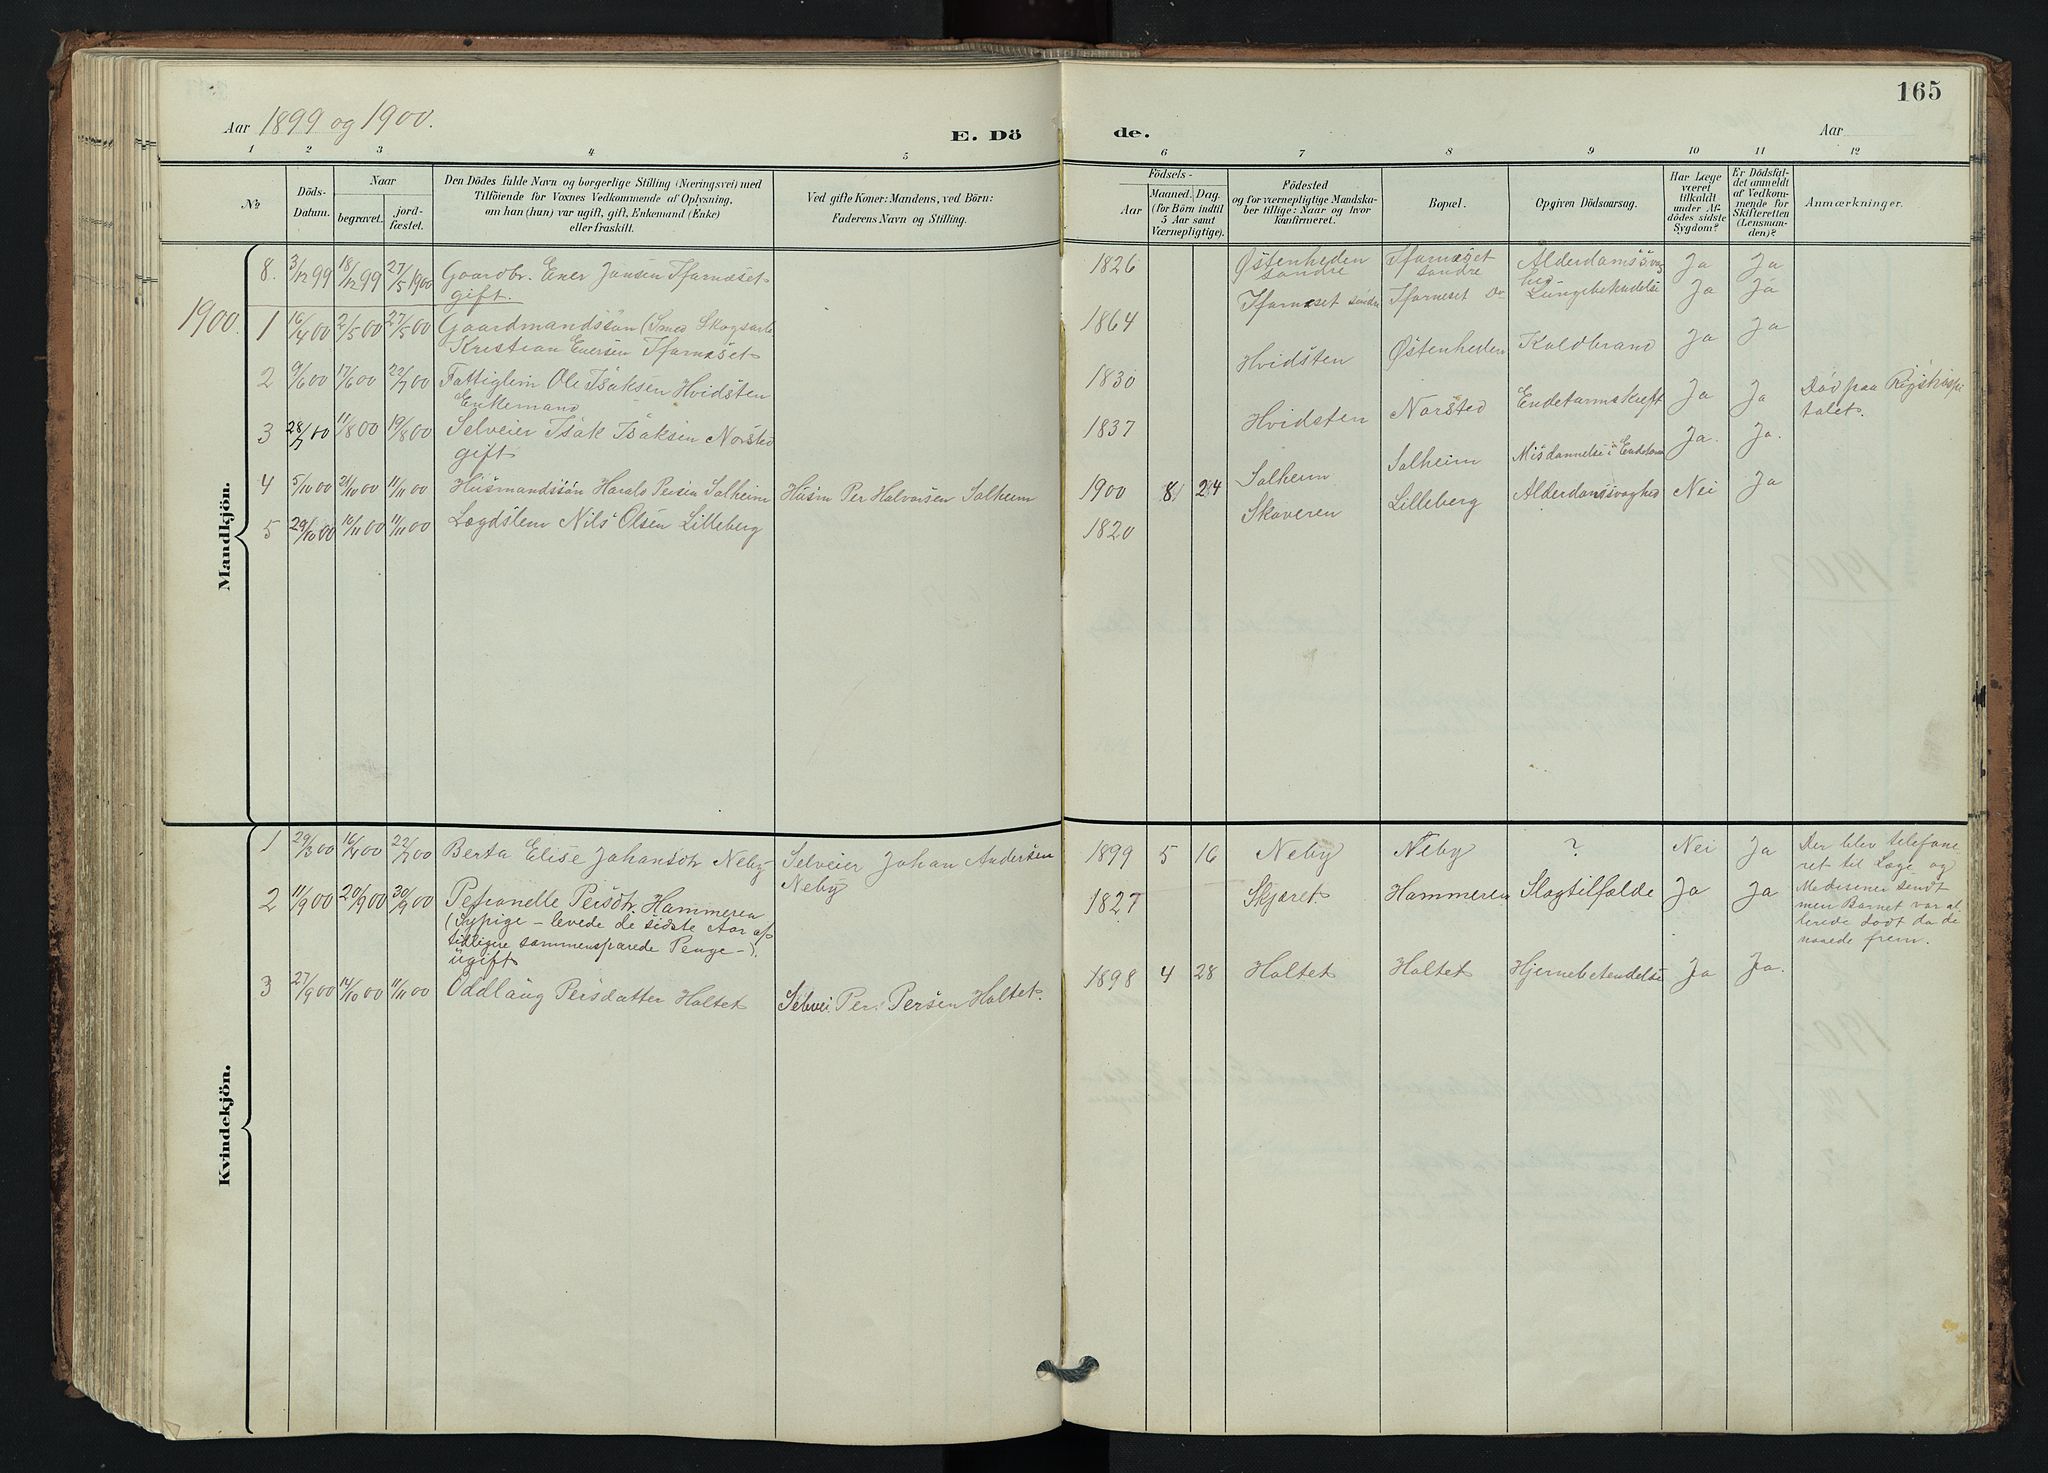 165
Aar 1899 og 1900.
E. Dö
de.
Aar
1 2 3 4 5 6 7 8 9 10 11 12
№
Döds-
Datum.
Naar
begravet.
jord-
fæstet.
Den Dödes fulde Navn og borgerlige Stilling (Næringsvei) med
Tilföiende for Voxnes Vedkommende af Oplysning,
om han (hun) var ugift, gift, Enkemand (Enke)
eller fraskilt.
Ved gifte Koner: Mandens, ved Börn:
Faderens Navn og Stilling.
Födsels-
Aar
Maaned. Dag.
(for Börn indtil
5 Aar samt
Værnepligtige).
Födested
og for værnepligtige Mandska-
ber tillige: Naar og hvor
konfirmeret.
Bopæl.
Opgiven Dödsaarsag.
Har Læge
været
tilkaldt
under Af-
dödes sidste
Sygdom?
Er Dödsfal-
det anmeldt
af Vedkom-
mende for
Skifteretten
(Lensman-
den)?
Anmærkninger.
Mandkjön.
8. 3/12 99 18/12 99 27/5 1900 Gaardbr. Ener Jansen Tfarnæset
gift.
1826 Østenheden
søndre
Tfarnæset
søndre
Alderdomssvag
hed
Ja Ja
1900.
1 16/4 00 2/5 00 27/5 00 Gaardmandssøn (Smed Skogsarb
Kristian Enersen Tfarnæset
1864 Tfarnæset søndre Tfarneset Do Lungebetendelse Ja Ja
2 9/6 00 17/6 00 22/7 00 Fattiglem Ole Isaksen Hvidsten
Enkemand
1830 Hvidsten Østenheden Koldbrand Ja Ja
3 28/7 00 11/8 00 19/8 00 Selveier Isak Isaksen Norsted
gift
1837 Hvidsten Norsted Endetarmskreft Ja Ja Död paa Rigshospi
talet.
4 5/10 00 21/10 00 11/11 00 Husmandssøn Harald Persen Solheim Husm Per Halvorsen Solheim
1900 8 24 Solheim Solheim Misdannelse i Endetarmen Ja. Ja.
5 29/10 00 10/11 00 11/11 00 Lægdslem Nils Olsen Lilleberg
1820 Skoveren Lilleberg Alderdomssvaghed Nei Ja
Kvindekjön.
1 29/3 00 16/4 00 22/7 00 Berta Elise Johansdtr Neby Selveier Johan Andersen
Neby
1899 5 16 Neby Neby ? Nei Ja Der blev telefone
ret til Læge og
Medisener sendt
men Barnet var al
lerede dødt da de
naaede frem.
2 11/9 00 20/9 00 30/9 00 Petronelle Persdtr. Hammeren
(Sypige – levede de sidste Aar af
tidligere sammensparede Penge –).
ugift
1827 Skjæret Hammeren Slagtilfælde Ja Ja
3 27/9 00 14/10 00 11/11 00 Oddlaug Persdatter Holtet Selvei. Per Persen Holtet.
1898 4 28 Holtet Holtet Hjernebetendelse Ja Ja.